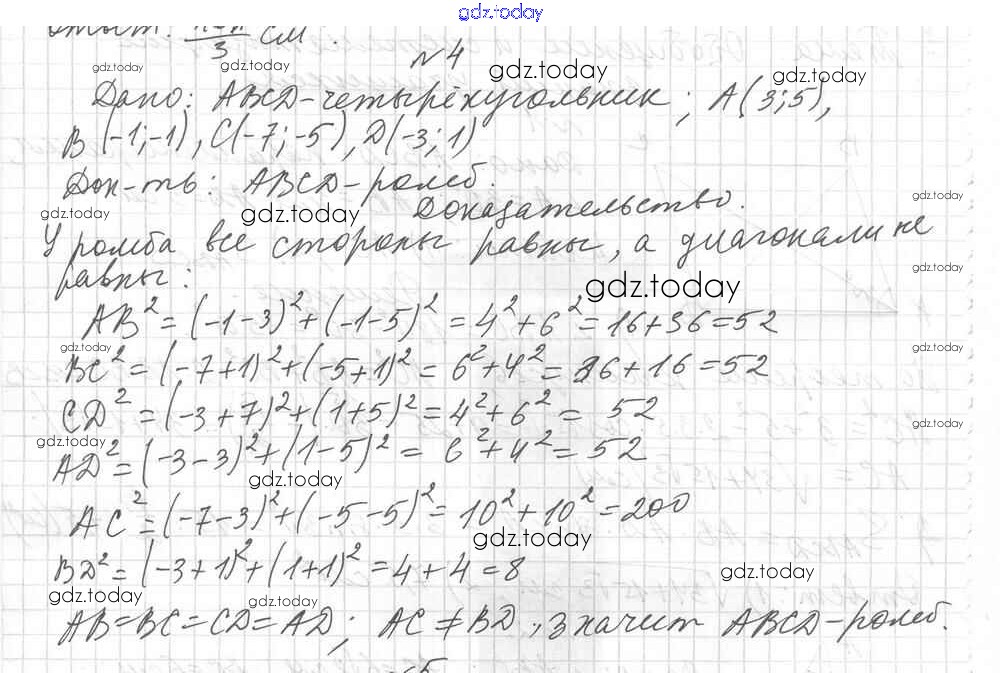 gdz.today
см.
№4
gdz.today gdz.today gdz.today
Дано: ABCD-четырёхугольник; A(3;5),
B(-1;-1), C(-7;-5), D(-3;1)
Док-ть: ABCD-ромб.
gdz.today gdz.today gdz.today
Доказательство.
У ромба все стороны равны, а диагонали не
равны:
gdz.today gdz.today
AB² = (-1-3)² + (-1-5)² = 4² + 6² = 16+36=52
gdz.today gdz.today
BC² = (-7+1)² + (-5+1)² = 6² + 4² = 36+16=52
CD² = (-3+7)² + (1+5)² = 4² + 6² = 52
gdz.today gdz.today
AD² = (-3-3)² + (1-5)² = 6² + 4² = 52
gdz.today
AC² = (-7-3)² + (-5-5)² = 10² + 10² = 200
gdz.today
BD² = (-3+1)² + (1+1)² = 4+4=8
gdz.today gdz.today gdz.today
AB=BC=CD=AD; AC≠BD, значит ABCD-ромб.